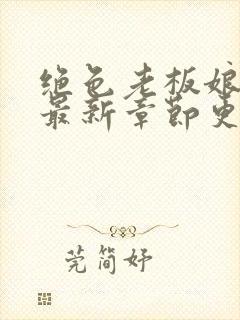 绝色老板娘
最新章节更
莞简妤